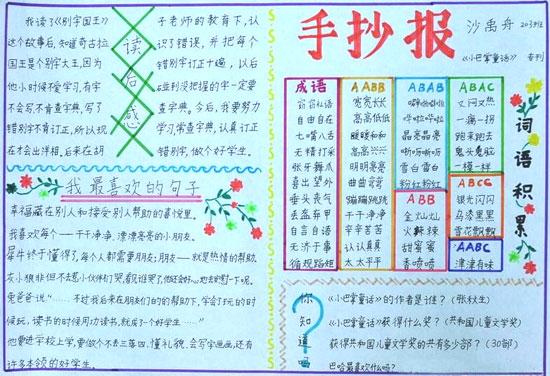 手抄报
沙禹舟
《小巴掌童话》 专刊
读后感
我读了《别字国王》
这个故事后,知道奇古拉
国王是个别字大王,因为
他小时候不爱学习,有字
不会写不肯查字典,写了
错别字不肯订正,所以现
在才会出洋相。后来在胡
子老师的教育下,认
识了错误,并把每个
错别字订正十遍,以后
查字典。今后,我要努力
学习,常查字典,认真订正
错别字,做个好学生。
我最喜欢的句子
幸福藏在别人和接受别人帮助的喜悦里。
我喜欢每个——干干净净、漂漂亮亮的小朋友。
犀牛终于懂得了,每个人都需要朋友;朋友——就是热情的帮助。
兔爸爸说"……不过我后来在朋友们的帮助下,学会了玩的时
候玩,读书的时候用功读书,就成了一个好学生……"
他要进学校上学,要做个不丢三落四、懂礼貌、会写字画画,还有
许多本领的好学生。
词语积累
成语
自由自在
七嘴八舌
无精打采
张牙舞爪
喜出望外
垂头丧气
丢盔弃甲
自言自语
无济于事
循规蹈矩
AABB
宽宽长长
高高低低
暖暖和和
高高兴兴
明明亮亮
曲曲弯弯
蹦蹦跳跳
干干净净
辛辛苦苦
认认真真
太太平平
ABAB
哗啦哗啦
晶亮晶亮
雪白雪白
粉红粉红
ABB
金灿灿
火辣辣
甜蜜蜜
香喷喷
ABAC
又闷又热
一瘸一拐
跑来跑去
鬼头鬼脑
一模一样
ABCC
银光闪闪
乌漆黑黑
雪花飘飘
AABC
津津有味
你知道吗?
《小巴掌童话》的作者是谁?(张秋生)
《小巴掌童话》获得什么奖?(共和国儿童文学奖)
获得共和国儿童文学奖的共有多少部?(30部)
巴哈最喜欢什么吗?